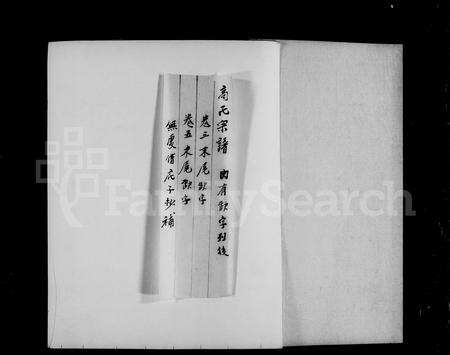 高氏宗譜 內有缺字列後
卷三末尾缺字
卷五末尾缺字
無處借底子抄補
FamilySearch